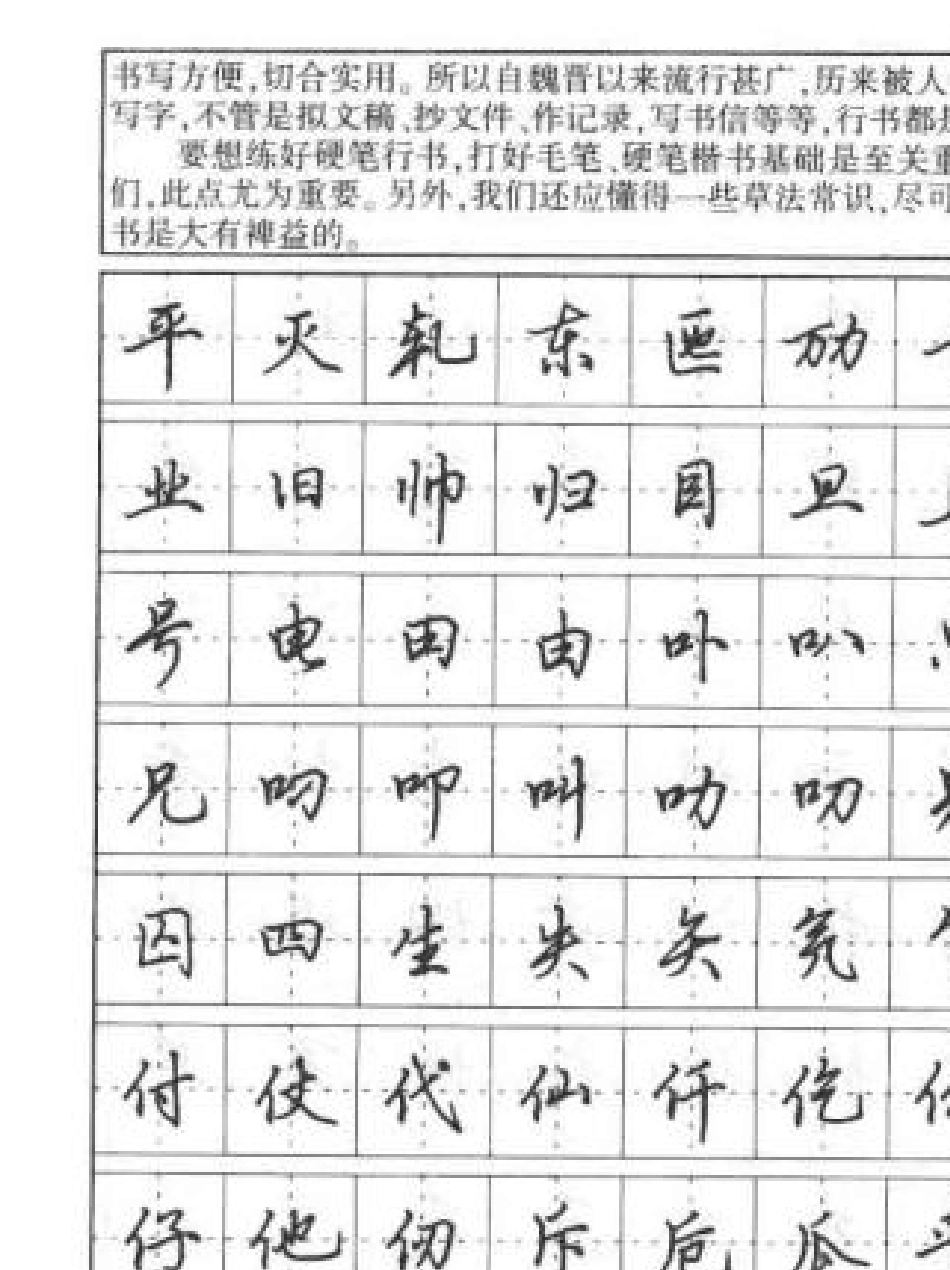 书写方便,切合实用。所以自魏晋以来流行甚广,历来被人
写字,不管是拟文稿、抄文件、作记录,写书信等等,行书都是
要想练好硬笔行书,打好毛笔、硬笔楷书基础是至关重
们,此点尤为重要。另外,我们还应懂得一些草法常识,尽可
书是大有裨益的。
平 灭 轧 东 匝 劢
业 旧 帅 归 目 旦
号 电 田 由 卟 叭
兄 叼 叩 叫 叻 叨
囚 四 生 失 矢 氕
付 仗 代 仙 仟 仡
仔 他 仞 斥 卮 瓜